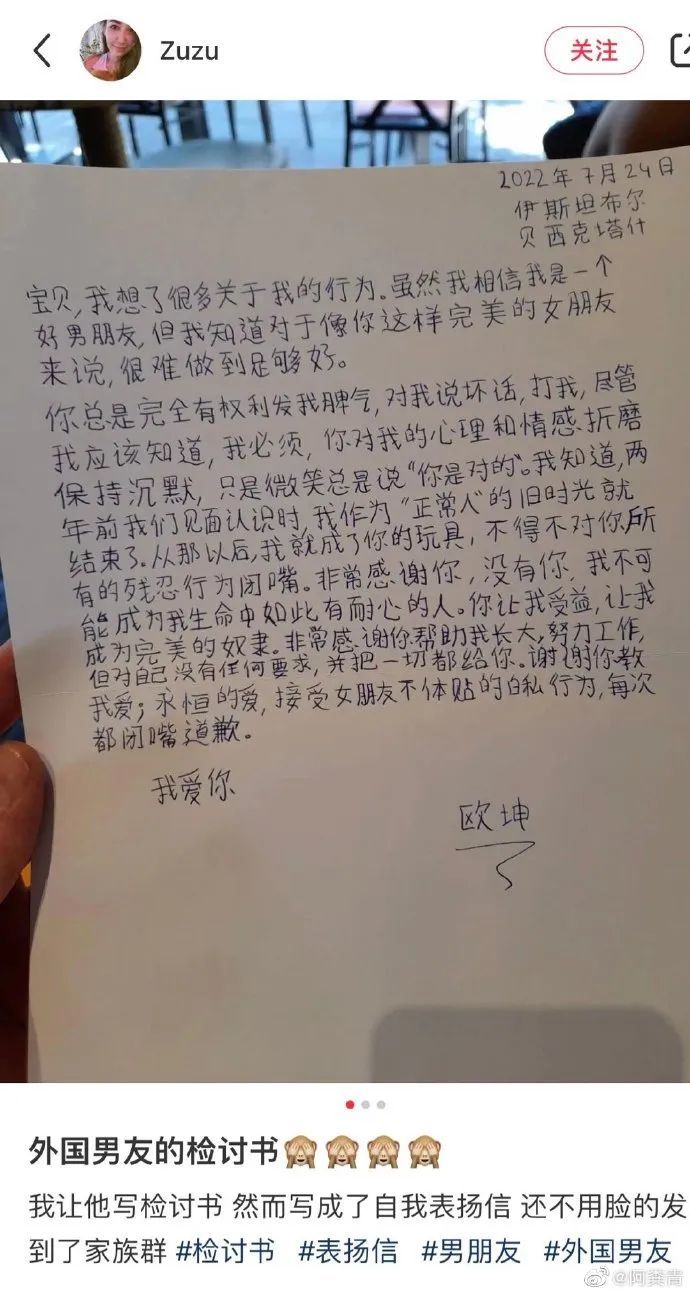 Zuzu
关注
2022年7月24日
伊斯坦布尔
贝西克塔什
宝贝,我想了很多关于我的行为。虽然我相信我是一个
好男朋友,但我知道对于像你这样完美的女朋友
来说,很难做到足够好。
你总是完全有权利发我脾气,对我说坏话,打我,尽管
我应该知道,我必须,你对我的心理和情感折磨
保持沉默,只是微笑总是说“你是对的”。我知道,两
年前我们见面认识时,我作为“正常人”的旧时光就
结束了。从那以后,我就成了你的玩具,不得不对你所
有的残忍行为闭嘴。非常感谢你,没有你,我不可
能成为我生命中如此有耐心的人。你让我受益,让我
成为完美的奴隶。非常感谢你帮助我长大,努力工作,
但对自己没有任何要求,并把一切都给你。谢谢你教
我爱;永恒的爱,接受女朋友不体贴的自私行为,每次
都闭嘴道歉。
我爱你
欧坤
外国男友的检讨书🙈🙈🙈🙈
我让他写检讨书 然而写成了自我表扬信 还不用脸的发
到了家族群 #检讨书 #表扬信 #男朋友 #外国男友
@阿粪青